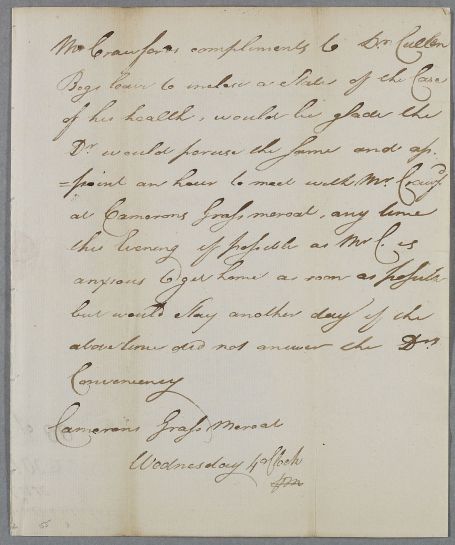 Mr Crawfords compliments to Dr Cullen
Begs leave to inclose a State of the Case
of his health, would be glade the
Dr would peruse the same and ap,
=point an hour to meet with Mr Crawfd
at Camerons Grassmercat, any time
this Evening if possible as Mr C. is
anxious to get home as soon as possible
but would Stay another day if the
above time did not answer the Drs
Conveniency
Camerons Grass Mercat
Wednesday 4 oClock